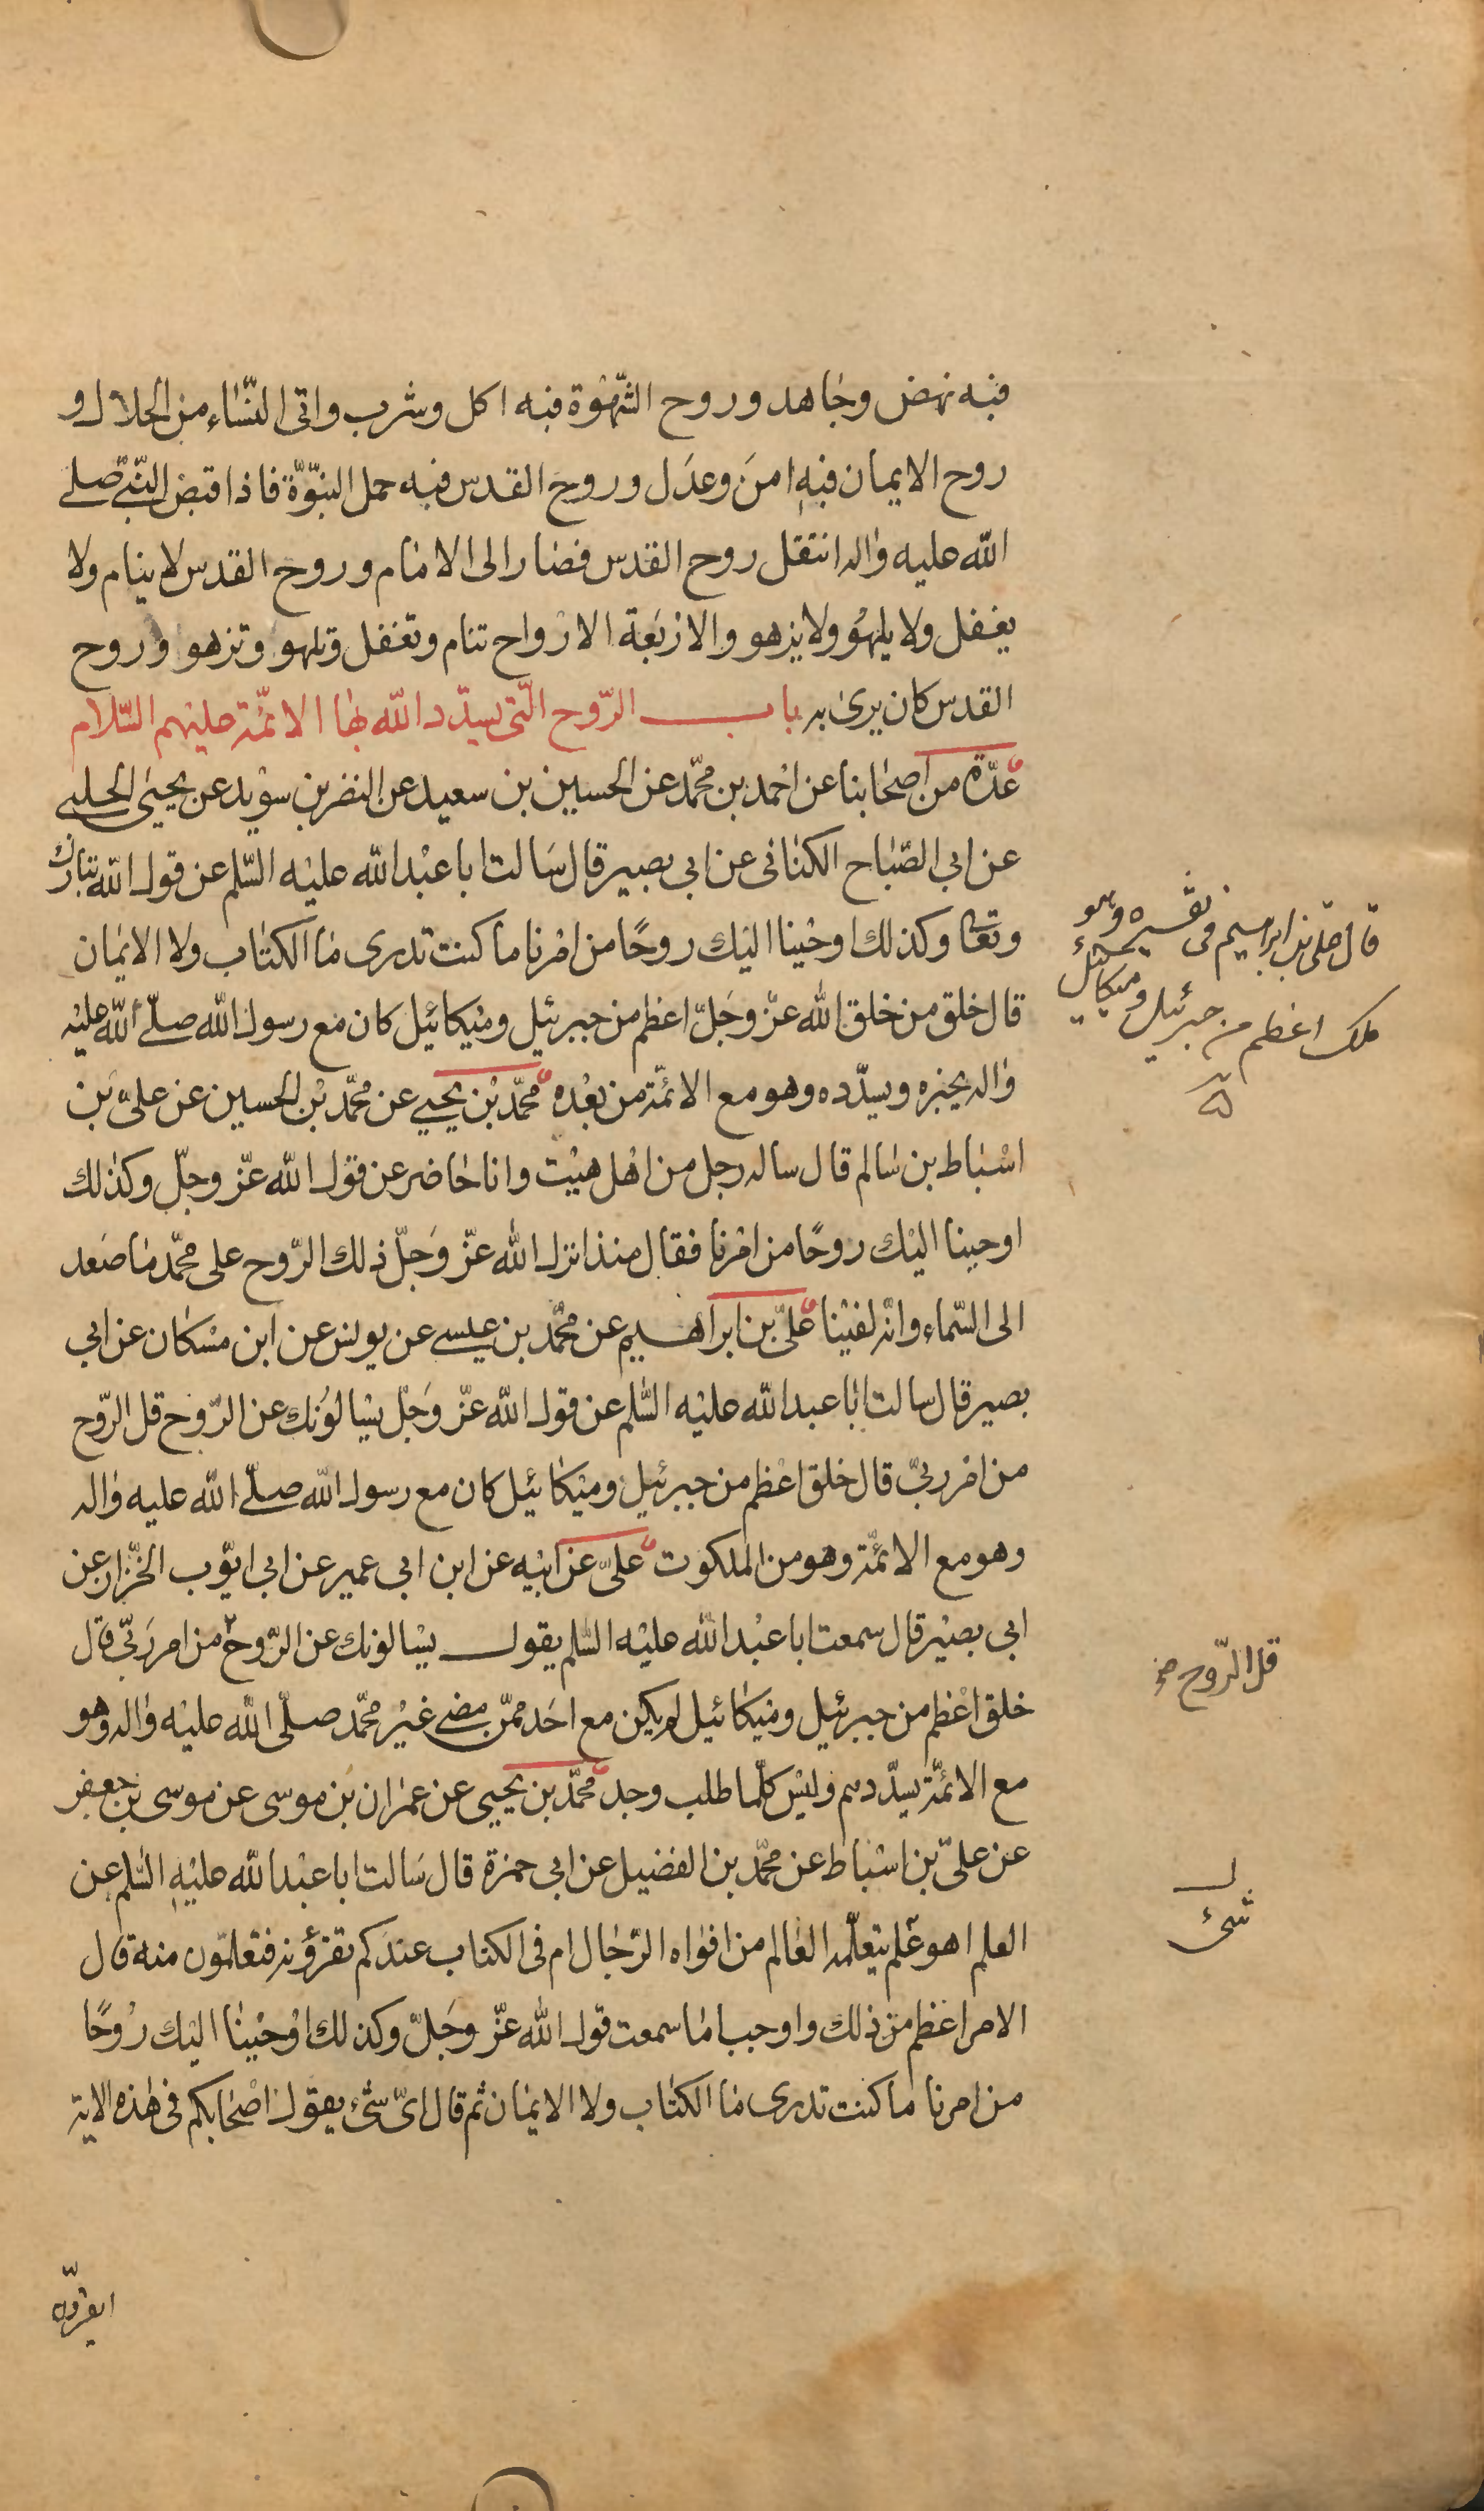 فبه نهض وجاهد وروح الشّهوة فبه اكل وشرب واتى النّساء من الحلال و
روح الايمان فبه امنَ وعدَل وروح القدس فبه حمل النبوّة فاذا قبض النّبيّ صلى
الله عليه واله انتقل روح القدس فصار الى الامام وروح القدس لا ينام ولا
يغفل ولا يلهو ولا يزهو والاربَعة الارواح تنام وتغفل وتلهو وتزهو وروح
القدس كان يرى به باب الرّوح الّتى يسدّد الله بها الائمّة عليهم السّلام
عدّة من اصحابنا عن احمد بن محمّد عن الحسين بن سعيد عن النضر بن سويد عن يحيى الحلبي
عن ابي الصّباح الكنانى عن ابي بصير قال سَالت ابا عبْد الله عليْه السّلم عن قول الله تبارك
وتعا وكذلك اوحْينا اليْك روحًا من امْرنا ما كنت تدرى ما الكتاب ولا الايمان
قال خلق من خلق الله عزّ وجَلّ اعظم من جبرئيل وميْكائيل كان مع رسول الله صلّى الله عليْه
واله يخبره ويسدّده وهو مع الائمّة من بعْده محمّد بْن يحيي عن محمّد بْن الحسين عن عليّ بن
اسْباط بن سالم قال ساله رجل من اهْل هيْت وانا حاضر عن قوْل الله عزّ وجلّ وكذلك
اوحينا اليْك روحًا من امْرنا فقال منذ انزل الله عزّ وَجلّ ذلك الرّوح على محمّد ما صَعد
الى السّماء وانّه لفيْنا عليّ بن ابراهيم عن محمّد بن عيسى عن يونس عن ابن مسْكان عن ابي
بصير قال سالت ابا عبد الله عليْه السّلم عن قول الله عزّ وَجلّ يسْالوُنك عن الرّوح قل الرّوح
من امْر ربيّ قال خلق اعْظم من جبرئيل وميْكائيل كان مع رسول الله صلّى الله عليه واله
وهو مع الائمّة وهو من الملكوت عليّ عن ابيْه عن ابن ابي عمير عن ابي ايّوب الخزّاز عن
ابي بصيْر قال سمعت ابا عبْد الله عليْه السّلم يقول يسْالونك عن الرّوح من امر رَبّي قال
خلق اعْظم من جبرئيل وميْكائيل لم يكن مع احَد ممّن مضى غيْر محمّد صلّى الله عليْه واله وهو
مع الائمّة يسدّدهم وليْس كلّما طلب وجد محمّد بن يحيي عن عمران بن موسى عن موسى بن جعفر
عن عليّ بن اسْباط عن محمّد بن الفضيل عن ابي حمزة قال سَالت ابا عبْد الله عليْه السّلم عن
العلم اهو علم يتعلّمه العالم من افواه الرّجال ام فى الكتاب عندكم تقرؤنه فتعلمّون منه قال
الامر اعْظم من ذلك واوجب اما سمعت قول الله عزّ وجَلّ وكذلك اوْحيْنا اليْك رُوحًا
من امرنا ما كنت تدرى ما الكتاب ولا الايمان ثم قال ايّ شئ يقول اصْحابكم فى هذه الاية
قال على بن ابراهيم فى تفسيره وهو
ملك اعظم من جبرئيل وميكائيل
قل الرّوح
شئ
ايقرّون